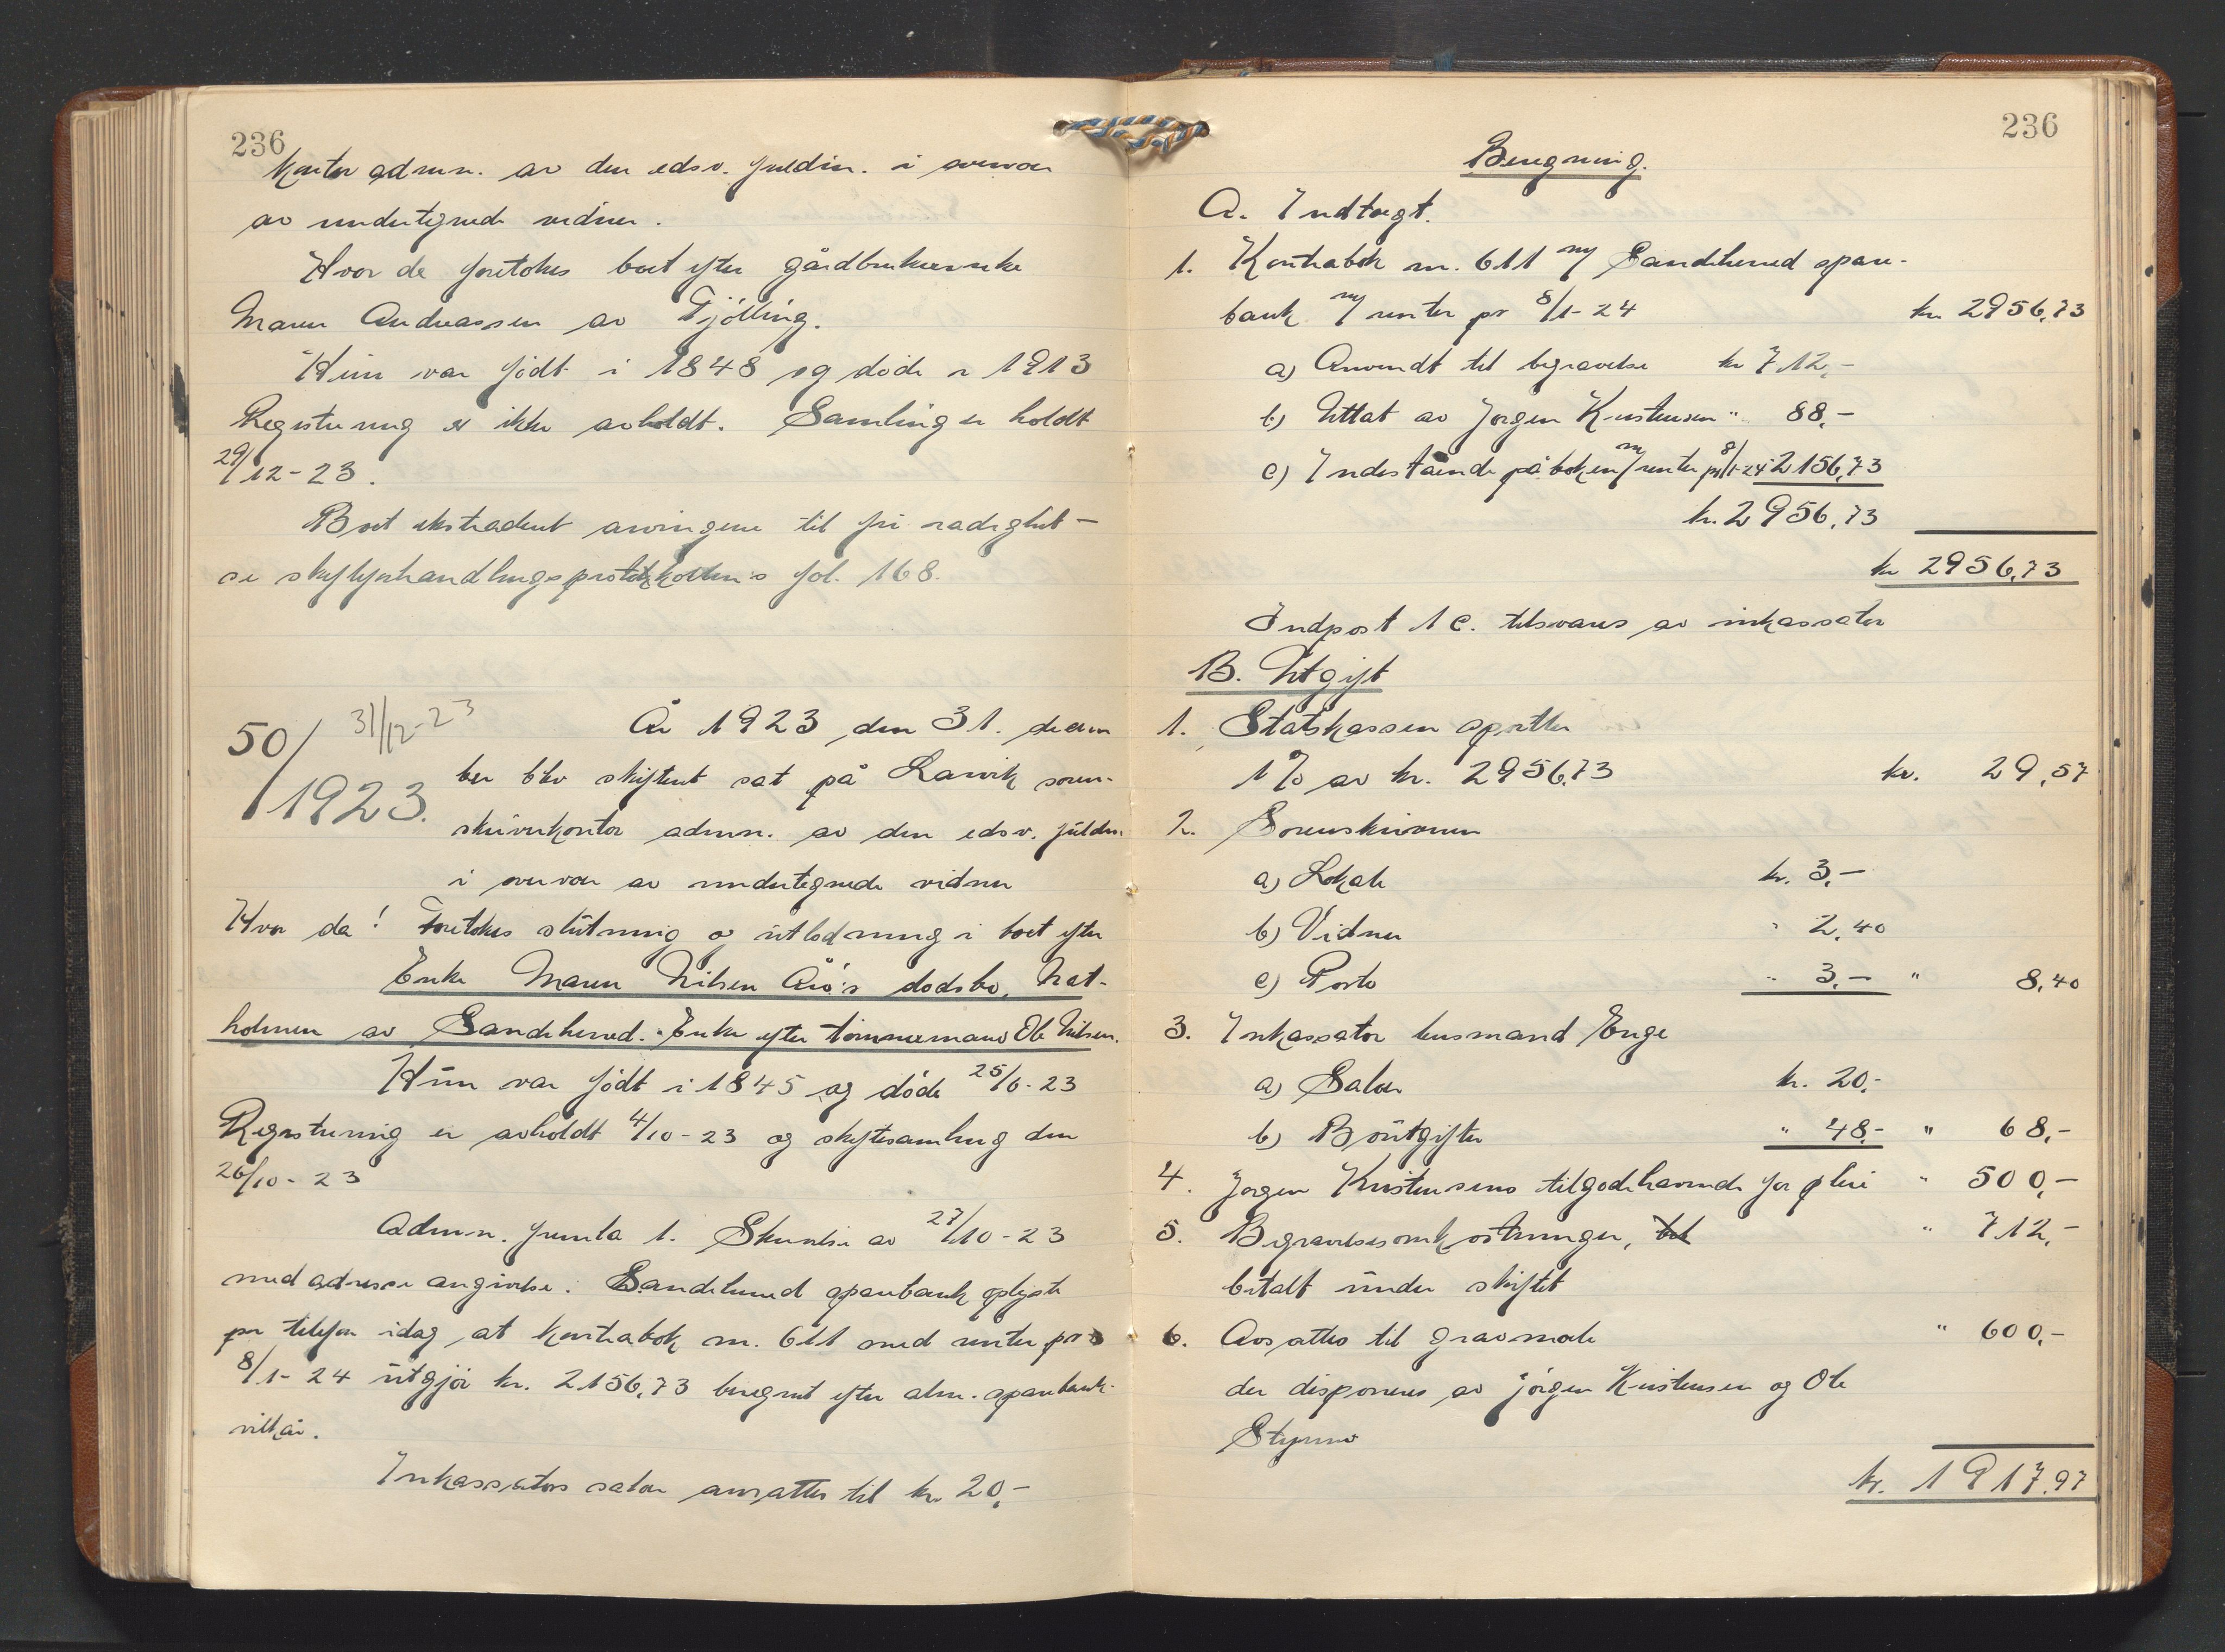 236
kontor admn. av den edsv. fuldm. i overvær
av undertegnede vidner.
Hvor da foretokes boet efter gårdbrukerenke
Maren Andreassen av Tjølling.
Hun var født i 1848 og døde i 1913
Registrering er ikke avholdt. Samling er holdt
29/12-23.
Boet ekstradert arvingene til fri rådighet -
se skifteforhandlingsprotokkollens fol. 168.
50/1923.
31/12-23
År 1923 den 31. decem
ber blev skifteret sat på Larvik soren-
skriverkontor admn. av den edsv. fuldm.
i overvær av undertegnede vidner
Hvor da! Foretokes slutning og utlodning i boet efter
Enke Maren Nilsen Årø's dødsbo, Nat-
holmen av Sandeherred. Enke efter tømmermand Ole Nilsen.
Hun var født i 1845 og døde 25/6-23
Registrering er avholdt 4/10-23 og skiftesamling den
26/10-23
Admn. fremla 1. Skrivelse av 27/10-23
med adresse angivelse. Sandeherred sparebank oplyste
pr telefon idag at kontrabok nr. 611 med renter pr
8/1-24 utgjør kr. 2156,73 beregnet efter alm. sparebank-
vilkår.
Inkassators salær ansattes til kr. 20,-
236
Beregning.
A. Indtægt.
1. Kontrabok nr. 611 m/ Sandeherred spare-
bank m/ renter pr 8/1-24 kr. 2956,73
a) Anvendt til begravelse kr 712,-
b) Uttat av Jørgen Kristensen " 88,-
c) Indestående på boken m/ renter pr 8/1-24 2156,73
kr. 2956,73
kr 2956,73
Indpost 1 c. tilsvares av inkassator
B. Utgift
1. Statskassen sportler
1% av kr. 2956,73 kr. 29,57
2. Sorenskriveren
a) Lokale kr. 3,-
b) Vidner " 2,40
c) Porto " 3,- " 8,40
3. Inkassator lensmand Enge
a) Salær kr. 20,-
b) Boutgifter " 48,- " 68,-
4. Jørgen Kristensens tilgodehavende for pleie " 500,-
5. Begravelsesomkostninger, bet " 712,-
betalt under skiftet
6. Avsattes til gravmæle " 600,-
der disponeres av Jørgen Kristensen og Ole
Styrmo
kr. 1917,97